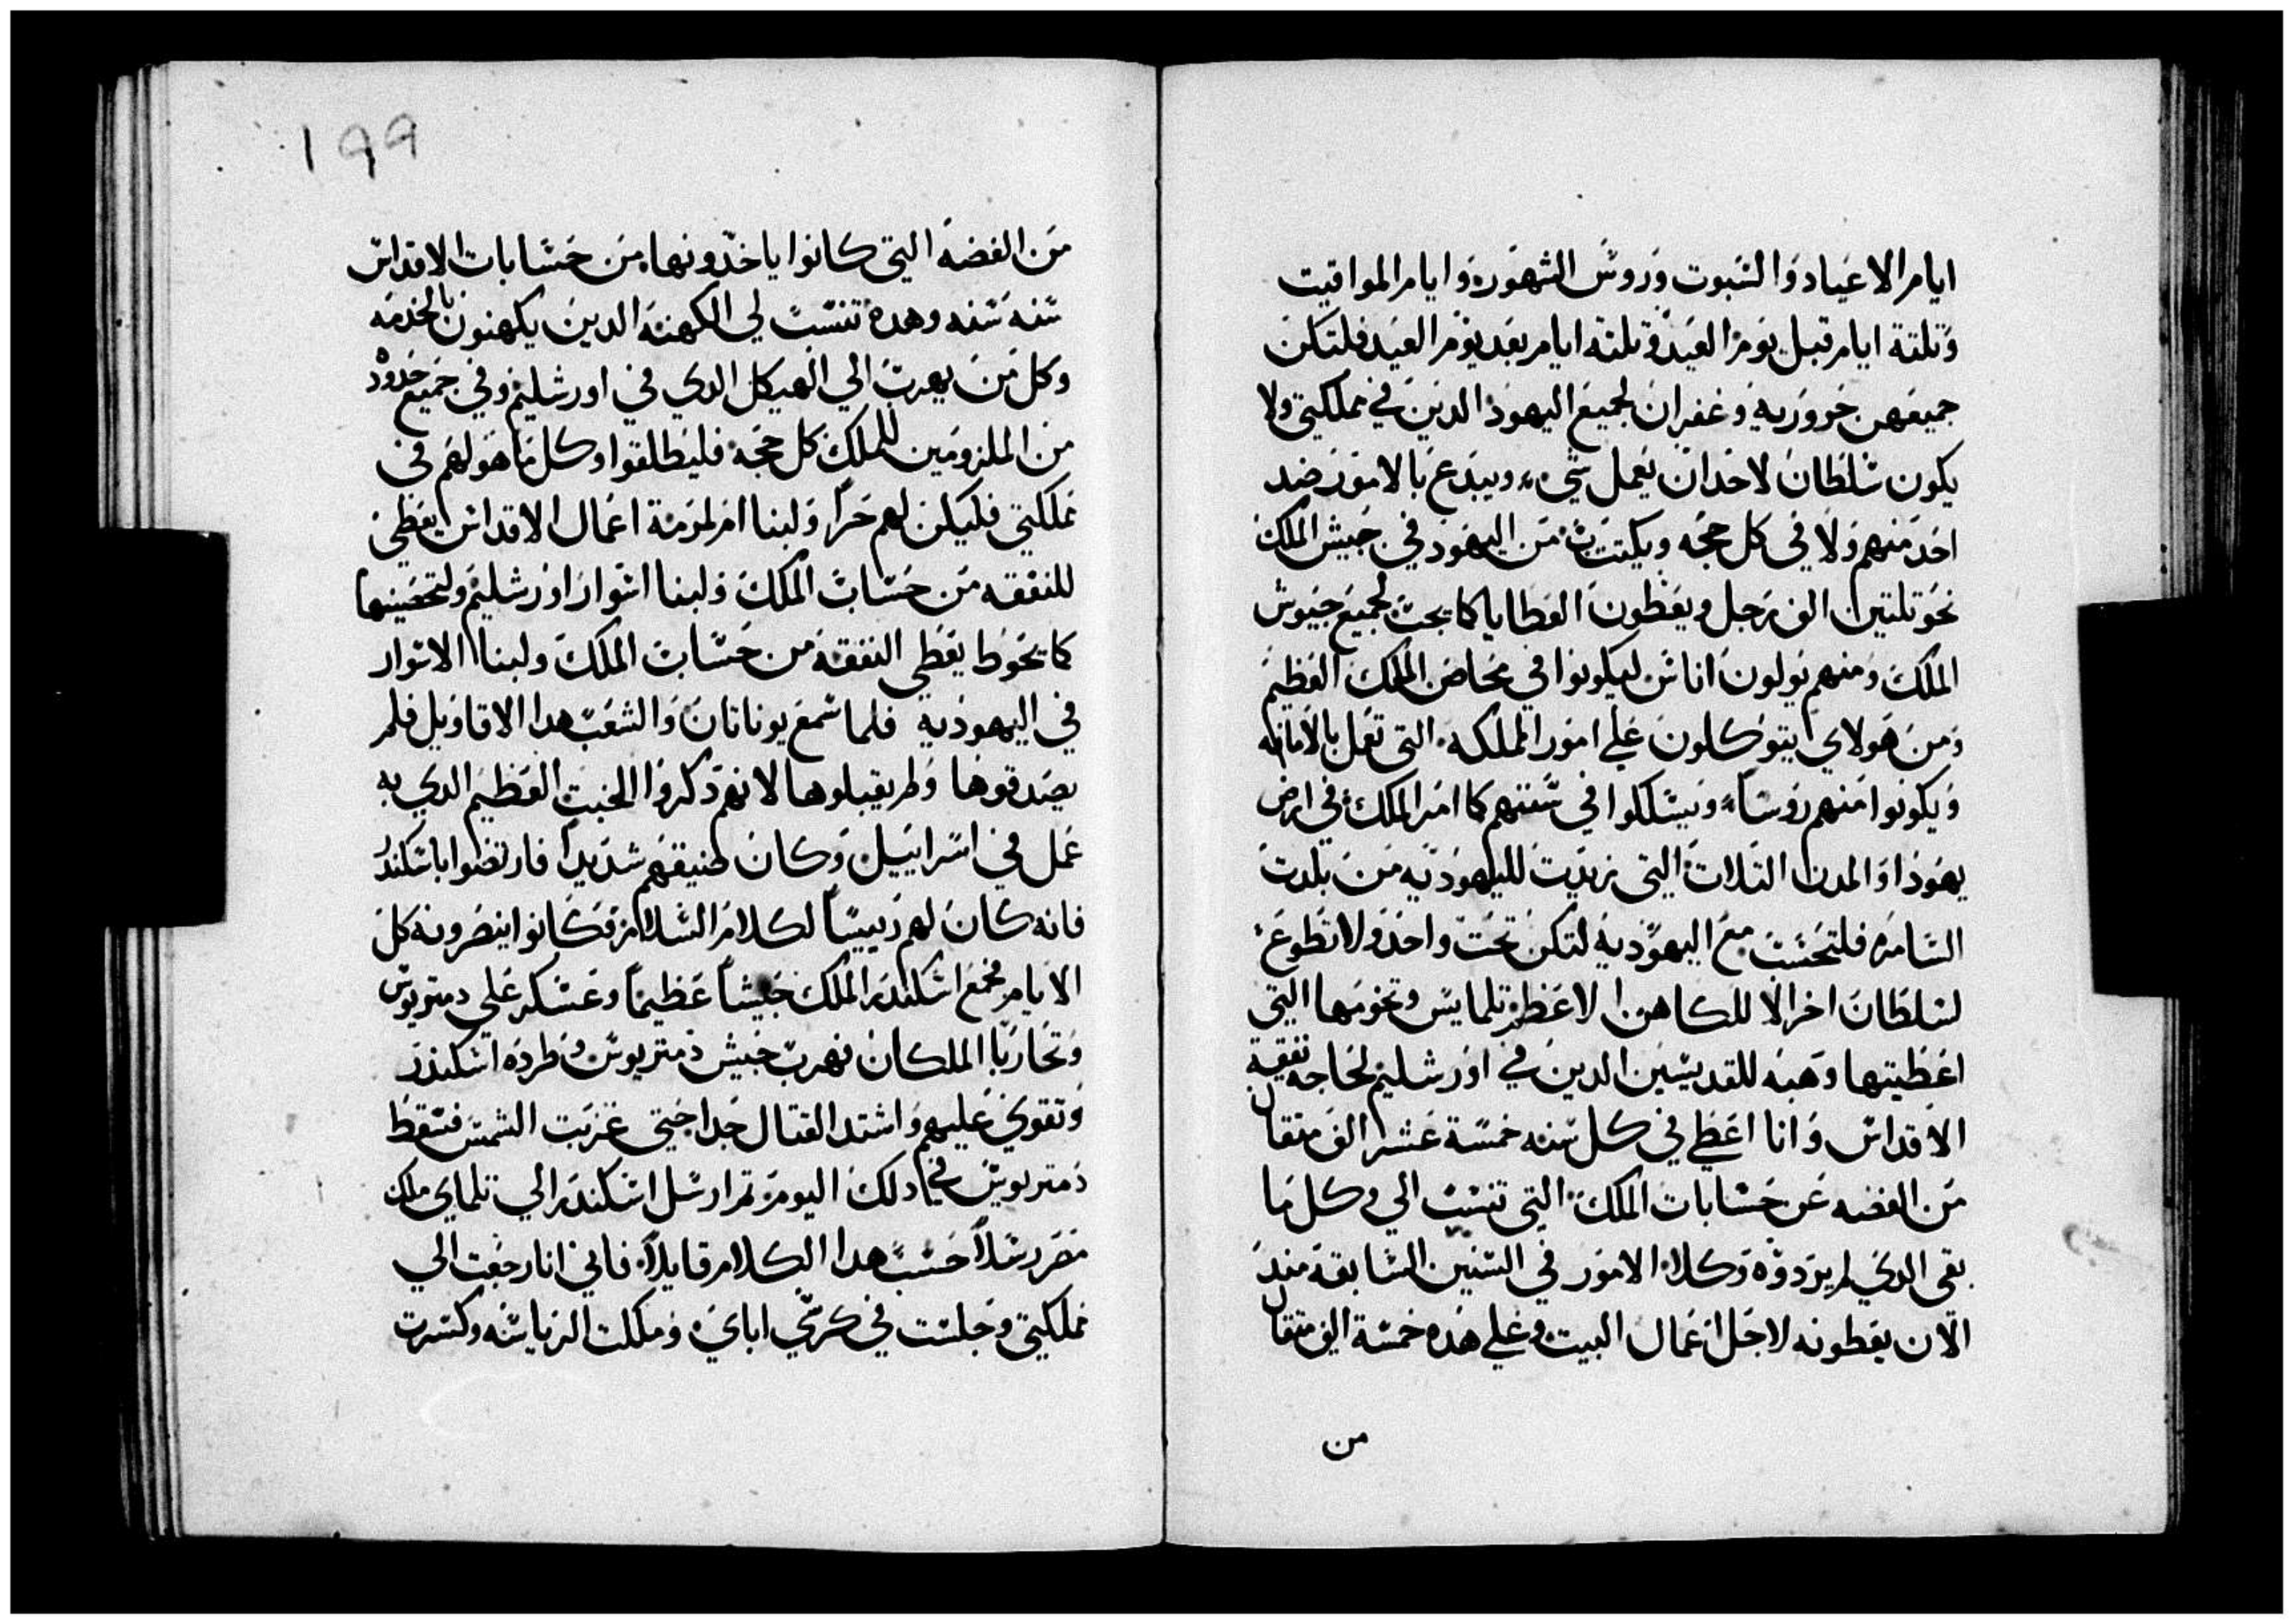 ايام الاعياد والسبوت وروس الشهور وايام المواقيت
وتلتة ايام قبل يوم العيد وتلته ايام بعد يوم العيد فلتكن
جميعهن حروريه وغفران لجميع اليهود الدين في مملكتي ولا
يكون سلطان لاحد ان يعمل شي ويبدع بالامور ضد
احد منهم ولا في كل حجه ويكتتب من اليهود في جيش الملك
نحو تلتين الف رجل ويعطون العطايا كما يجب لجميع جيوش
الملك ومنهم يولون اناس ليكونوا في محاض الملك العظيم
ومن هولاي يتوكلون علي امور المملكه التي تعمل بالامانه
ويكونوا منهم روسا ويسلكوا في سنتهم كما امر الملك في ارض
يهودا والمدن التلات التي زيدت لليهوديه من بلدت
السامره فلتحسب مع اليهوديه لتكن تحت واحد ولا تطوع
لسلطان اخر الا للكاهن الاعظم تلمايس وتخومها التي
اعطيتها وهبه للقديسين الدين في اورشليم لحاجه نفقة
الاقداس وانا اعطي في كل سنه خمسة عشر الف متقال
من الفضه عن حسابات الملك التي تنسب الي وكل ما
بقي الدي لم يردوه وكلاء الامور في السنين السابقة مند
الان يعطونه لاجل اعمال البيت وعلي هده خمسة الف متقال
من
١٩٩
من الفضه التي كانوا ياخدونها من حسابات الاقداس
سنه سنه وهده تنسب لي الكهنه الدين يكهنون بالخدمه
وكل من يهرب الي الهيكل الدي في اورشليم وفي جميع حدوده
من الملزومين للملك كل حجه فليطلقوا وكل ما هو لهم في
مملكتي فليكن لهم حرا ولبنا امر لمرمة اعمال الاقداس يعطي
للنفقه من حساب الملك ولبنا اسوار اورشليم ولتحصينها
كما تحوط يعطي النفقه من حساب الملك ولبنا الاسوار
في اليهوديه فلما سمع يوناتان والشعب هدا الاقاويل فلم
يصدقوها ولم يقبلوها لانهم دكروا الخبت العظيم الدي به
عمل في اسراييل وكان لضيقهم شديدا فارتضوا باسكندر
فانه كان لهم رييسا لكلام السلام وكانوا ينصرونه كل
الايام فجمع اسكندر الملك جيشا عظيما وعسكر علي دمتريوس
وتحاربا الملكان فهرب جيش دمتريوس وطرده اسكندر
وتقوي عليهم واشتد القتال جدا حتي غربت الشمس فسقط
دمتريوس في دلك اليوم تم ارسل اسكندر الي تلماي ملك
مصر رسلا حسب هدا الكلام قايلا فاني انا رجعت الي
مملكتي وجلست في كرسي اباي وملكت الرياسه وكسرت